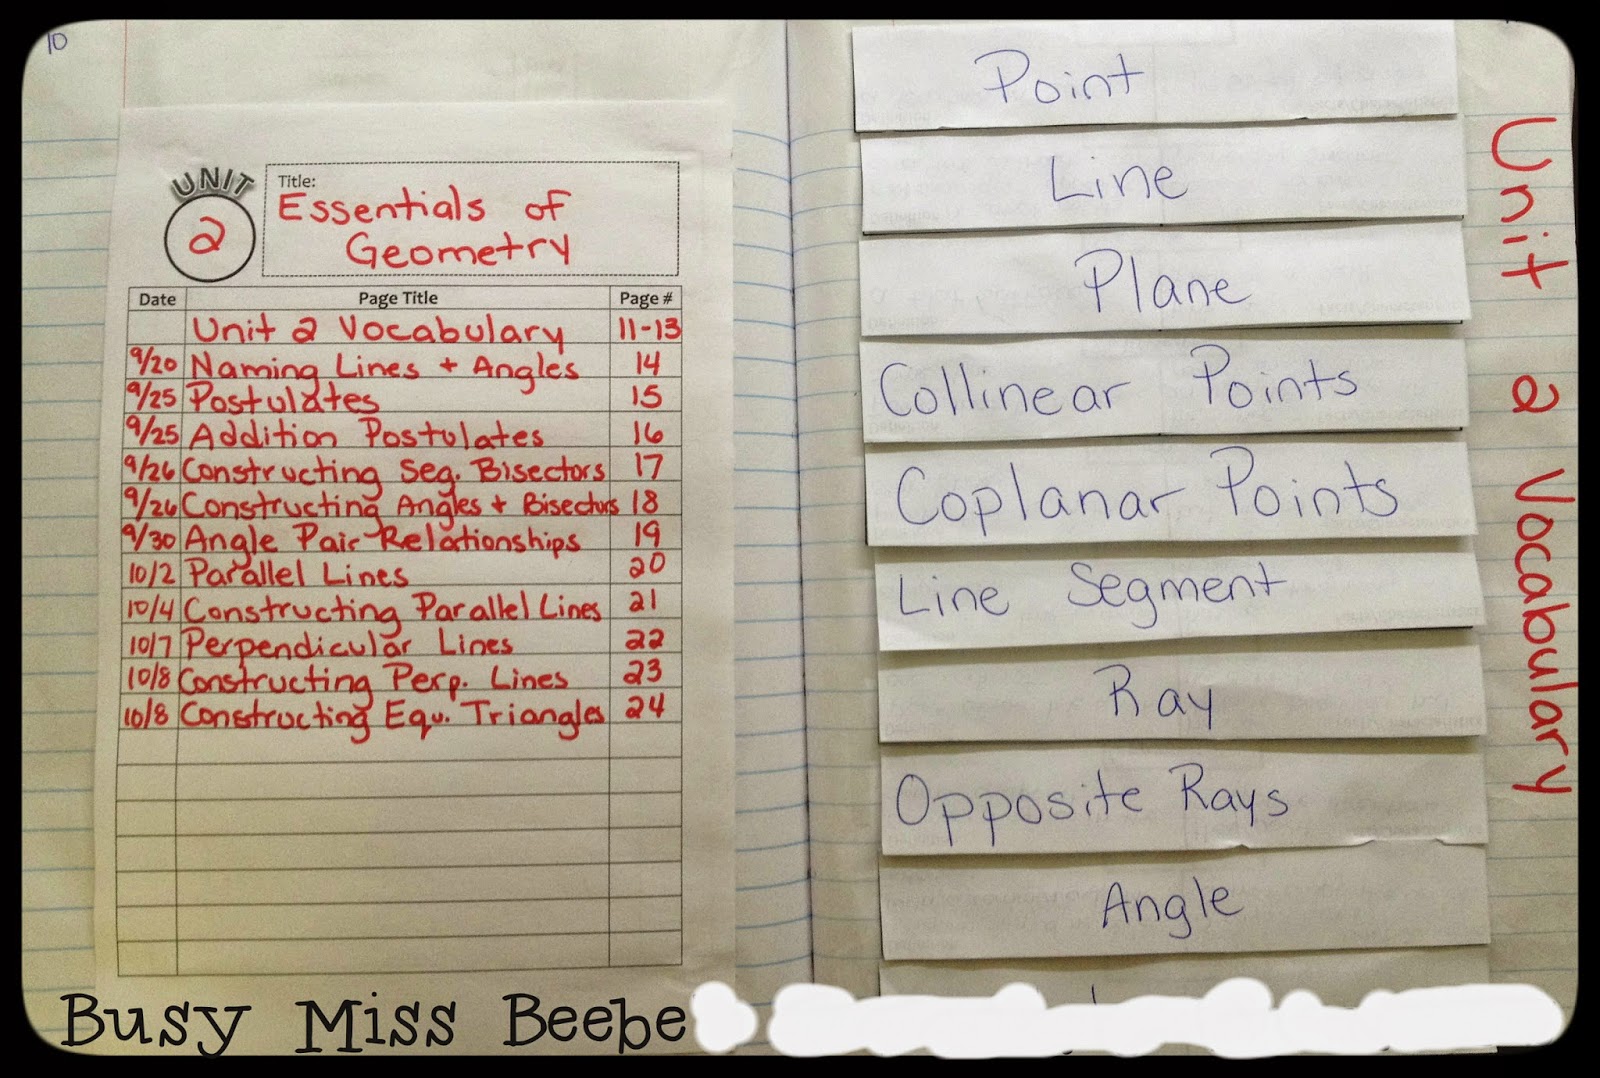 10
UNIT
2
Title:
Essentials of
Geometry
Date Page Title Page #
Unit 2 Vocabulary 11-13
9/20 Naming Lines + Angles 14
9/25 Postulates 15
9/25 Addition Postulates 16
9/26 Constructing Seg. Bisectors 17
9/26 Constructing Angles + Bisectors 18
9/30 Angle Pair Relationships 19
10/2 Parallel Lines 20
10/4 Constructing Parallel Lines 21
10/7 Perpendicular Lines 22
10/8 Constructing Perp. Lines 23
10/8 Constructing Equ. Triangles 24
Point
Line
Plane
Collinear Points
Coplanar Points
Line Segment
Ray
Opposite Rays
Angle
Unit 2 Vocabulary
Busy Miss Beebe